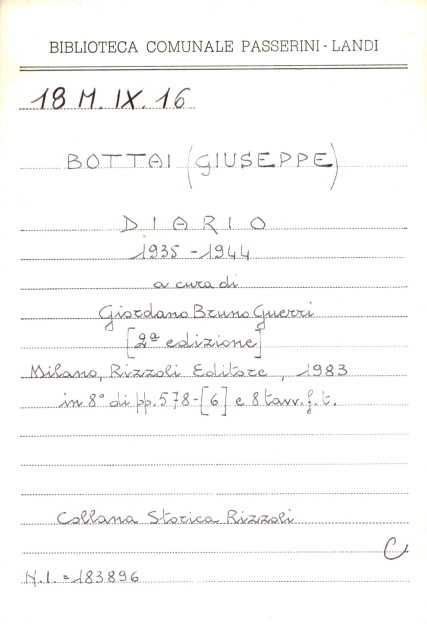 BIBLIOTECA COMUNALE PASSERINI - LANDI
18 M. IX. 16
BOTTAI (GIUSEPPE)
DIARIO
1935 - 1944
a cura di
Giordano Bruno Guerri
[2ª edizione]
Milano, Rizzoli Editore, 1983
in 8° di pp. 578-[6] e 8 tavv. f. t.
Collana Storica Rizzoli
C
N.I. = 183896